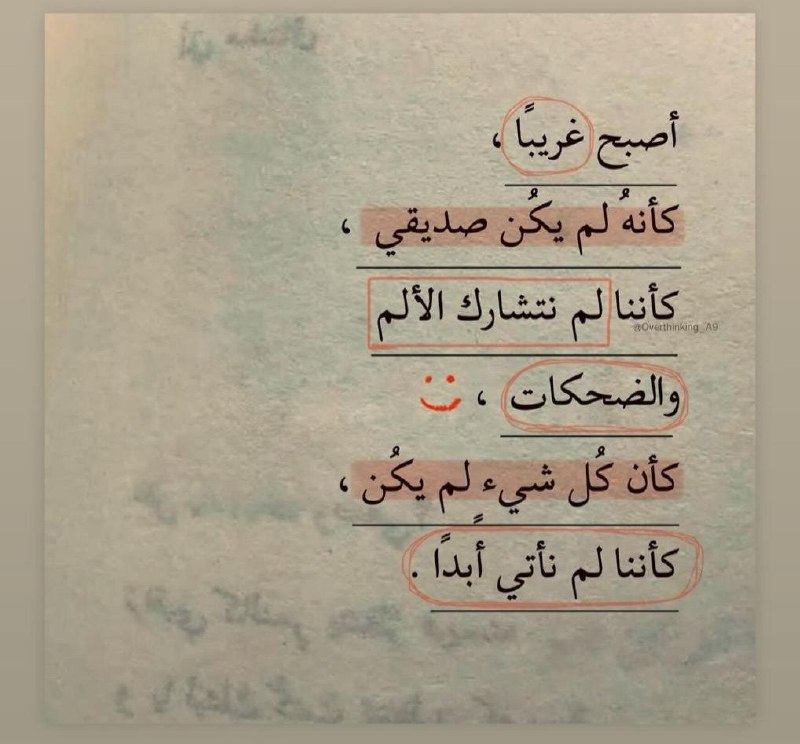 أصبح غريبًا ،
كأنهُ لم يكُن صديقي ،
كأننا لم نتشارك الألم
@Overthinking_A9
والضحكات ،
كأن كُل شيء لم يكُن ،
كأننا لم نأتي أبدًا .